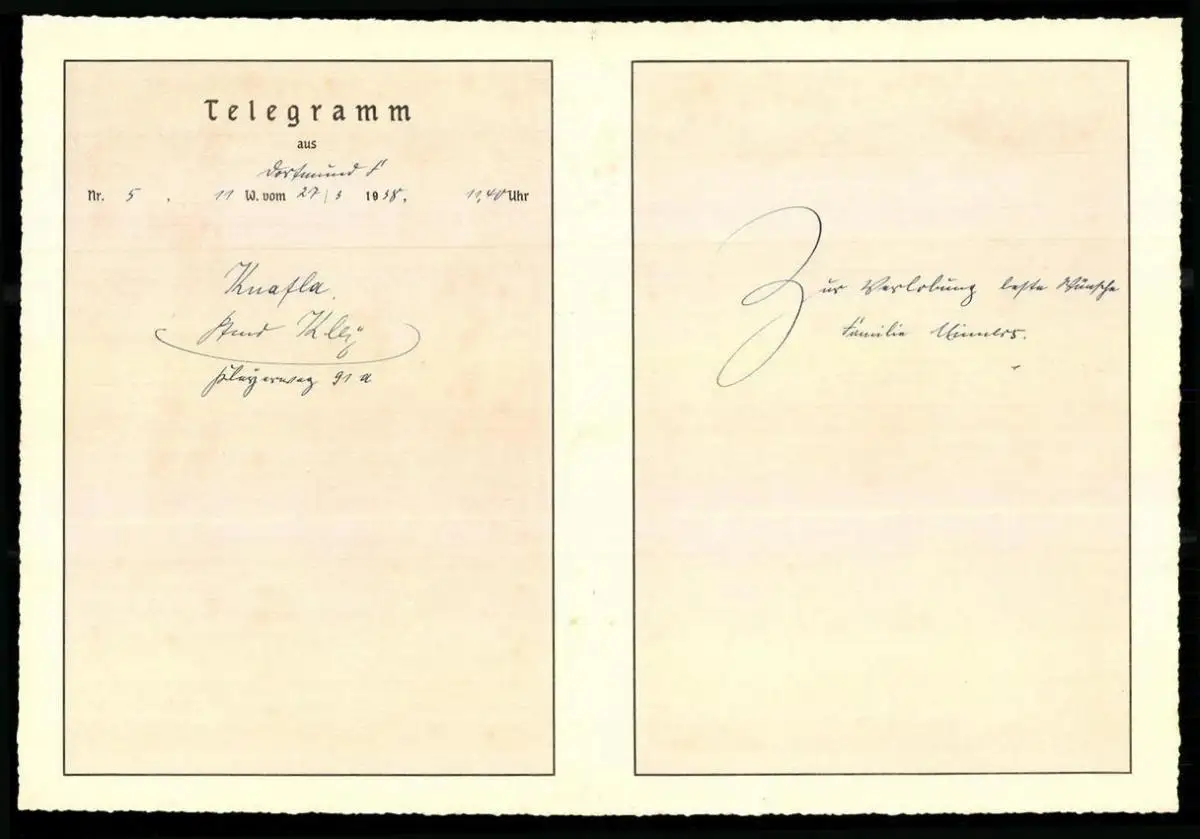 Telegramm
aus
Dortmund F
Nr. 5, 11 W. vom 27/3 1938, 11,40 Uhr
Knafla.
Kley
91 a
Zur Verlobung beste Wünsche
Familie Minners.